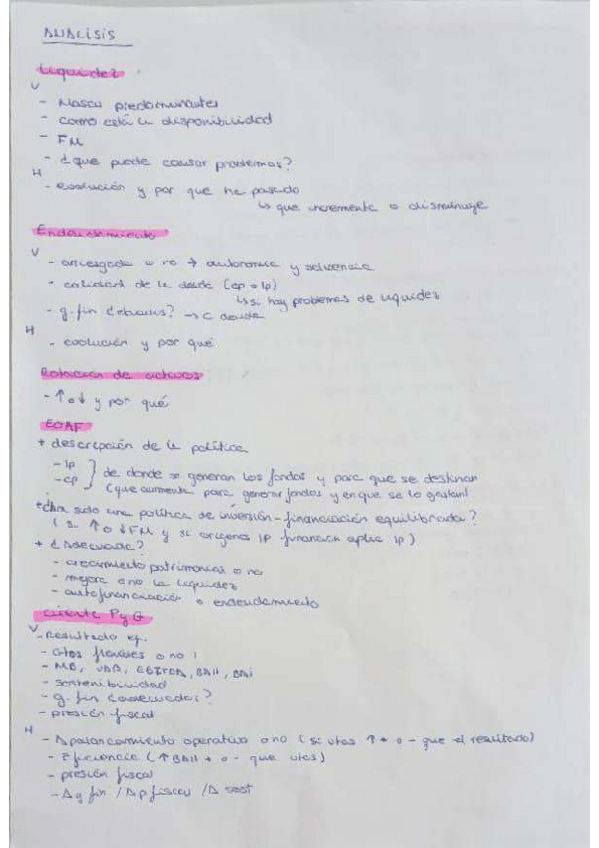 ANALISIS
Liquidez
V
- Masas predominantes
- como está la disponibilidad
- FM
- ¿que puede causar problemas?
H
- evolución y por que ha pasado
↳ que incrementa o disminuye
Endeudamiento
V
- arriesgada o no → autonomia y solvencia
- calidad de la deuda (cp o lp)
↳ si hay problemas de liquidez
- g. fin → C deuda
H
- evolución y por qué
Rotación de activos
- ↑ o ↓ y por qué
EOAF
+ descripción de la política
- lp } de donde se generan los fondos y para que se destinan
- cp } (que aumenta para generar fondos y en que se lo gastan)
+ ¿ha sido una política de inversión - financiación equilibrada?
(si ↑ o ↓ FM y si origenes lp financian aplic lp)
+ ¿Adecuada?
- crecimiento patrimonial o no
- mejora o no la liquidez
- autofinanciación o endeudamiento
Cuenta PyG
V
- Resultado ej.
- Gtos flexibles o no
- MB, VAB, EBITDA, BAII, BAI
- sostenibilidad
- g. fin ¿adecuados?
- presión fiscal
H
- Apalancamiento operativo o no (si vtas ↑ + o - que el resultado)
- Eficiencia (↑ BAII + o - que vtas)
- presión fiscal
- Δg fin / Δp fiscal / Δ sost